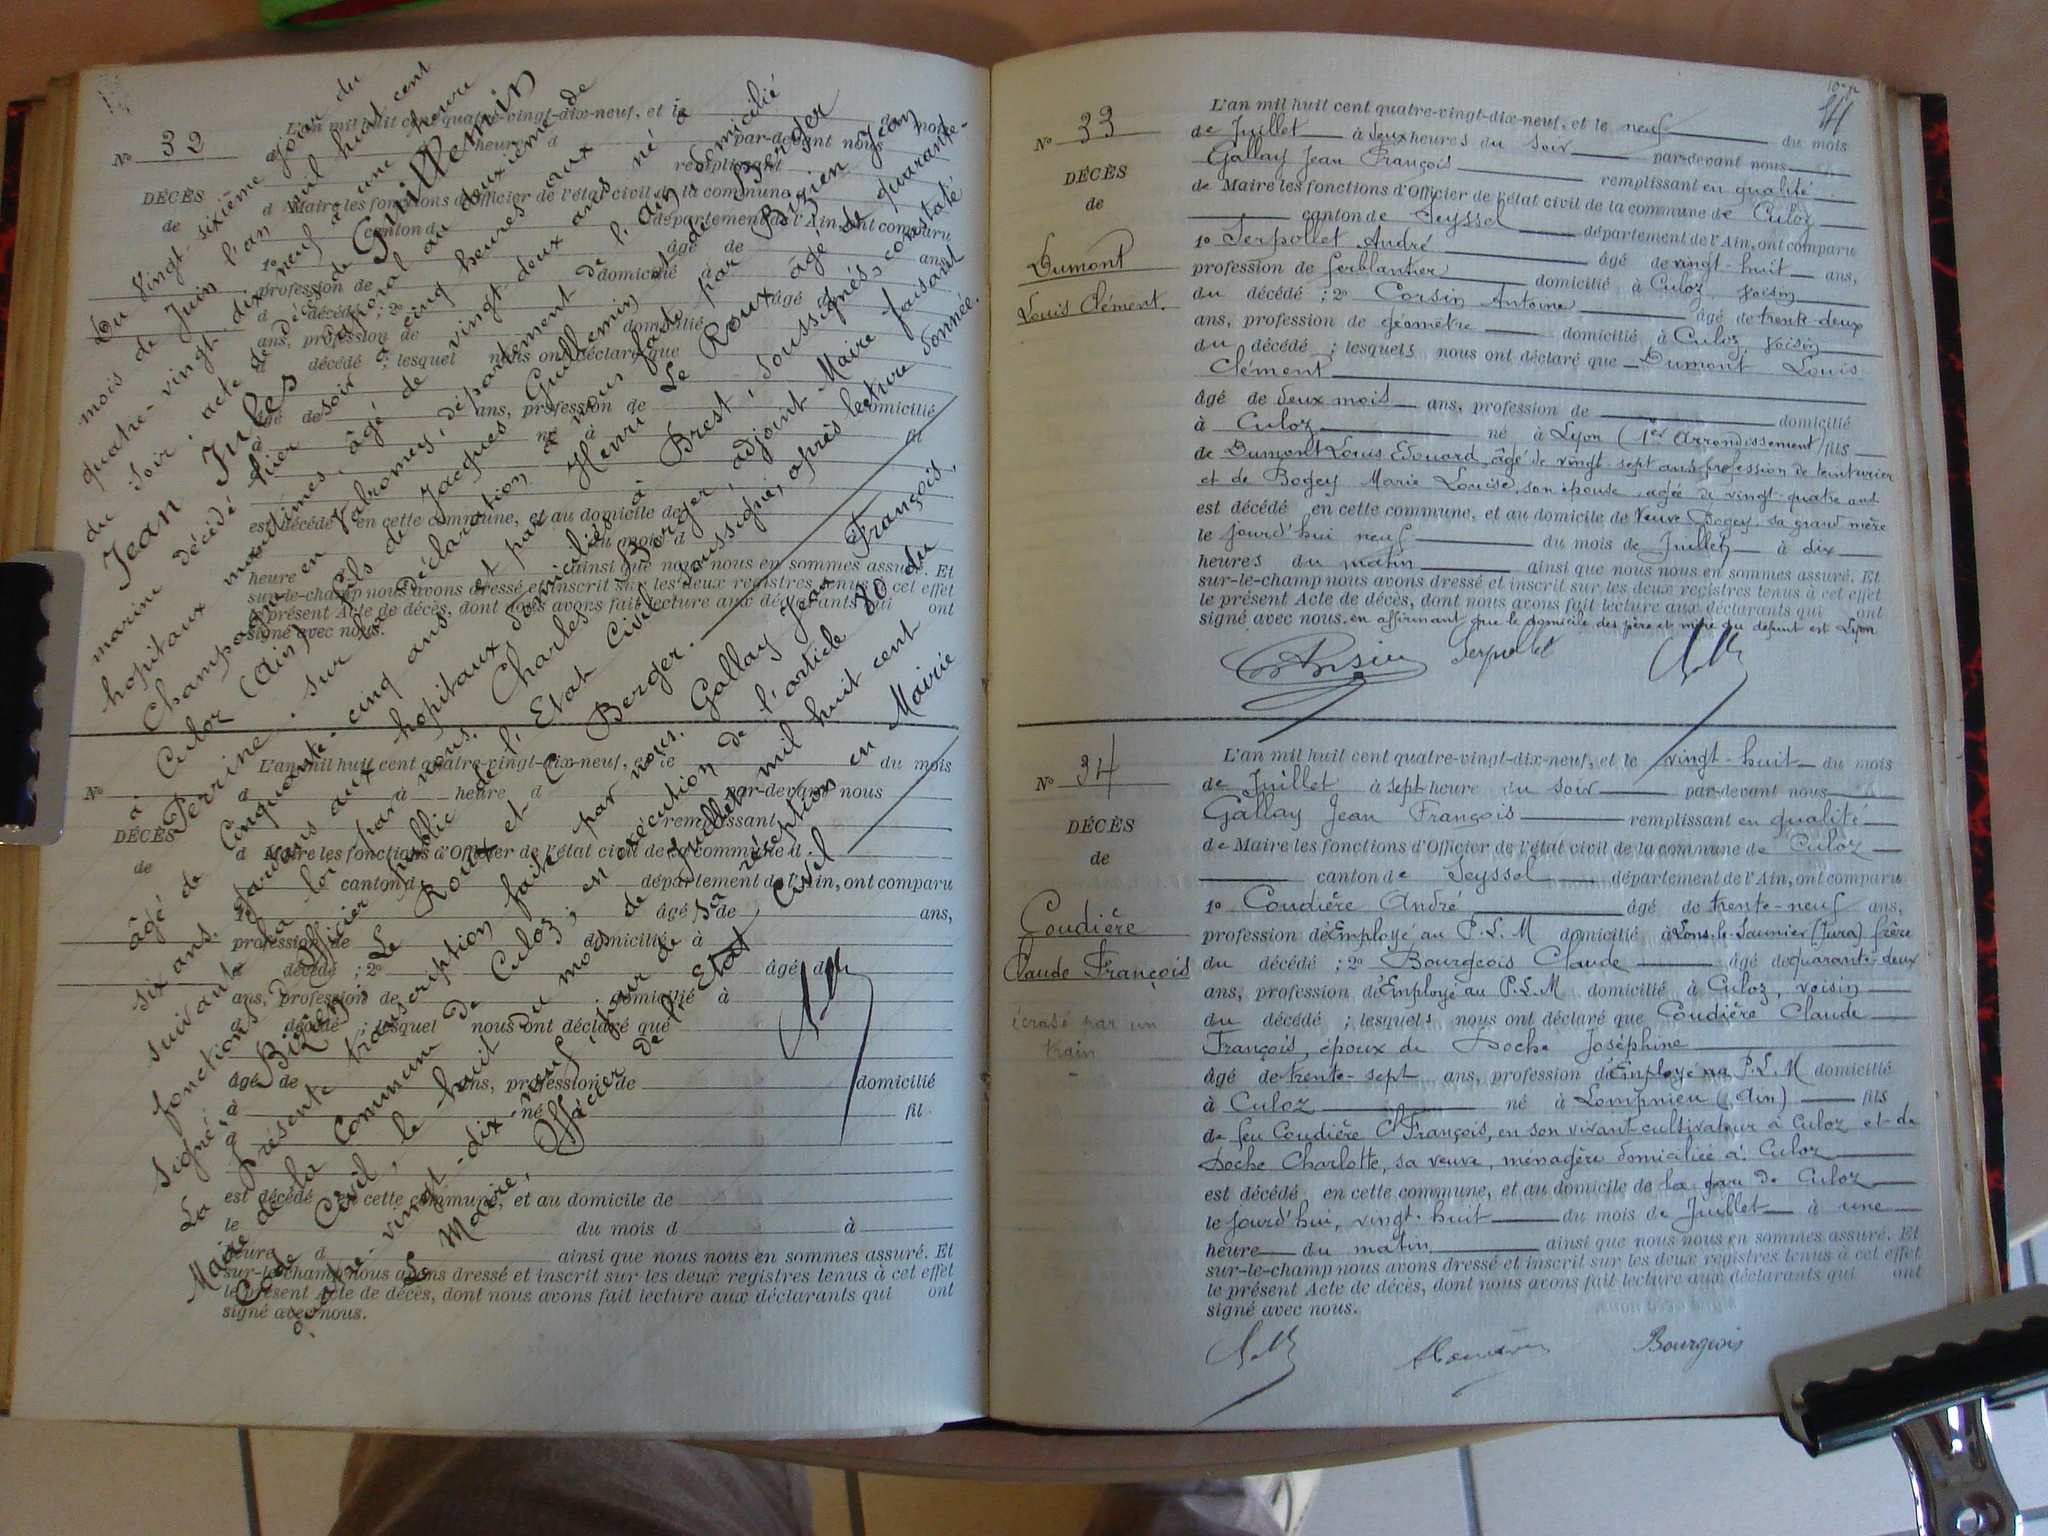 No 32
DÉCÈS
de
Du Vingt-sixième jour du
mois de Juin l'an mil huit cent
quatre-vingt-dix neuf à une heure
du soir, acte de décès de Guillemin
Jean Jules
marine décédé hier soir à cinq heures aux
hopitaux maritimes, âgé de vingt-deux ans né à
Champagne en Valromey, département de l'Ain domicilié
à Culoz (Ain) fils de Jacques Guillemin et de Berger
Perrine. sur la déclaration à nous faite par Bizien Jean
âgé de Cinquante-cinq ans et par Henri Le Roux âgé de quarante-
six ans, gardiens aux hopitaux domiciliés à Brest, soussignés, constaté
suivant la loi par nous, Charles Berger, adjoint-Maire faisant
fonctions d'Officier public de l'Etat Civil soussigné, après lecture donnée.
signé, Bizien, Le Roux et C. Berger.
La présente transcription faite par nous, Gallay Jean François,
Maire de la Commune de Culoz; en exécution de l'article 80 du
Code Civil, le huit du mois de Juillet mil huit cent
quatre-vingt-dix-neuf, jour de sa réception en Mairie
Le Maire, Officier de l'Etat Civil
L'an mil huit cent quatre-vingt-dix-neuf, et le du mois
No d à heure d par-devant nous
DÉCÈS remplissant
de d Maire les fonctions d'Officier de l'état civil de la commune d
canton d département de l'Ain, ont comparu
1o âgé de ans,
profession de domicilié à
d décédé ; 2o âgé de
ans, profession de domicilié à
d décédé ; lesquel nous ont déclaré que
âgé de ans, profession de domicilié
à né à fil
est décédé en cette commune, et au domicile de
le du mois d à
heure d ainsi que nous nous en sommes assuré. Et
sur-le-champ nous avons dressé et inscrit sur les deux registres tenus à cet effet
le présent Acte de décès, dont nous avons fait lecture aux déclarants qui ont
signé avec nous.
No 33
DÉCÈS
de
Dumont
Louis Clément.
L'an mil huit cent quatre-vingt-dix-neuf, et le neuf du mois
de Juillet à deux heures du soir par-devant nous
Gallay Jean François remplissant en qualité
de Maire les fonctions d'Officier de l'état civil de la commune de Culoz
canton de Seyssel département de l'Ain, ont comparu
1o Serpollet André âgé de vingt-huit ans,
profession de ferblantier domicilié à Culoz, voisin
du décédé ; 2o Corsin Antoine âgé de trente-deux
ans, profession de géomètre domicilié à Culoz, voisin
du décédé ; lesquels nous ont déclaré que Dumont Louis
Clément
âgé de deux mois ans, profession de domicilié
à Culoz né à Lyon (1er Arrondissement) fils
de Dumont Louis Edouard, âgé de vingt-sept ans profession de teinturier
et de Bogey Marie Louise, son épouse, agée de vingt-quatre ans
est décédé en cette commune, et au domicile de Veuve Bogey, sa grand mère
le jourd'hui neuf du mois de Juillet à dix
heures du matin ainsi que nous nous en sommes assuré. Et
sur-le-champ nous avons dressé et inscrit sur les deux registres tenus à cet effet
le présent Acte de décès, dont nous avons fait lecture aux déclarants qui ont
signé avec nous. en affirmant que le domicile des père et mère du défunt est Lyon
Corsin Serpollet
No 34
DÉCÈS
de
Coudière
Claude François
écrasé par un
train
L'an mil huit cent quatre-vingt-dix-neuf, et le vingt-huit du mois
de Juillet à sept heure du soir par-devant nous
Gallay Jean François remplissant en qualité
de Maire les fonctions d'Officier de l'état civil de la commune de Culoz
canton de Seyssel département de l'Ain, ont comparu
1o Coudière André âgé de trente-neuf ans,
profession d'Employé au P.L.M domicilié à Lons-le-Saunier (Jura) frère
du décédé ; 2o Bourgeois Claude âgé de quarante-deux
ans, profession d'Employé au P.L.M domicilié à Culoz, voisin
du décédé ; lesquels nous ont déclaré que Coudière Claude
François, époux de Doche Joséphine
âgé de trente-sept ans, profession d'Employé au P.L.M domicilié
à Culoz né à Lompnieu (Ain) fils
de feu Coudière Cde François, en son vivant cultivateur à Culoz et de
Doche Charlotte, sa veuve, ménagère domiciliée à Culoz
est décédé en cette commune, et au domicile de la gare de Culoz
le jourd'hui, vingt-huit du mois de Juillet à une
heure du matin ainsi que nous nous en sommes assuré. Et
sur-le-champ nous avons dressé et inscrit sur les deux registres tenus à cet effet
le présent Acte de décès, dont nous avons fait lecture aux déclarants qui ont
signé avec nous.
Bourgeois